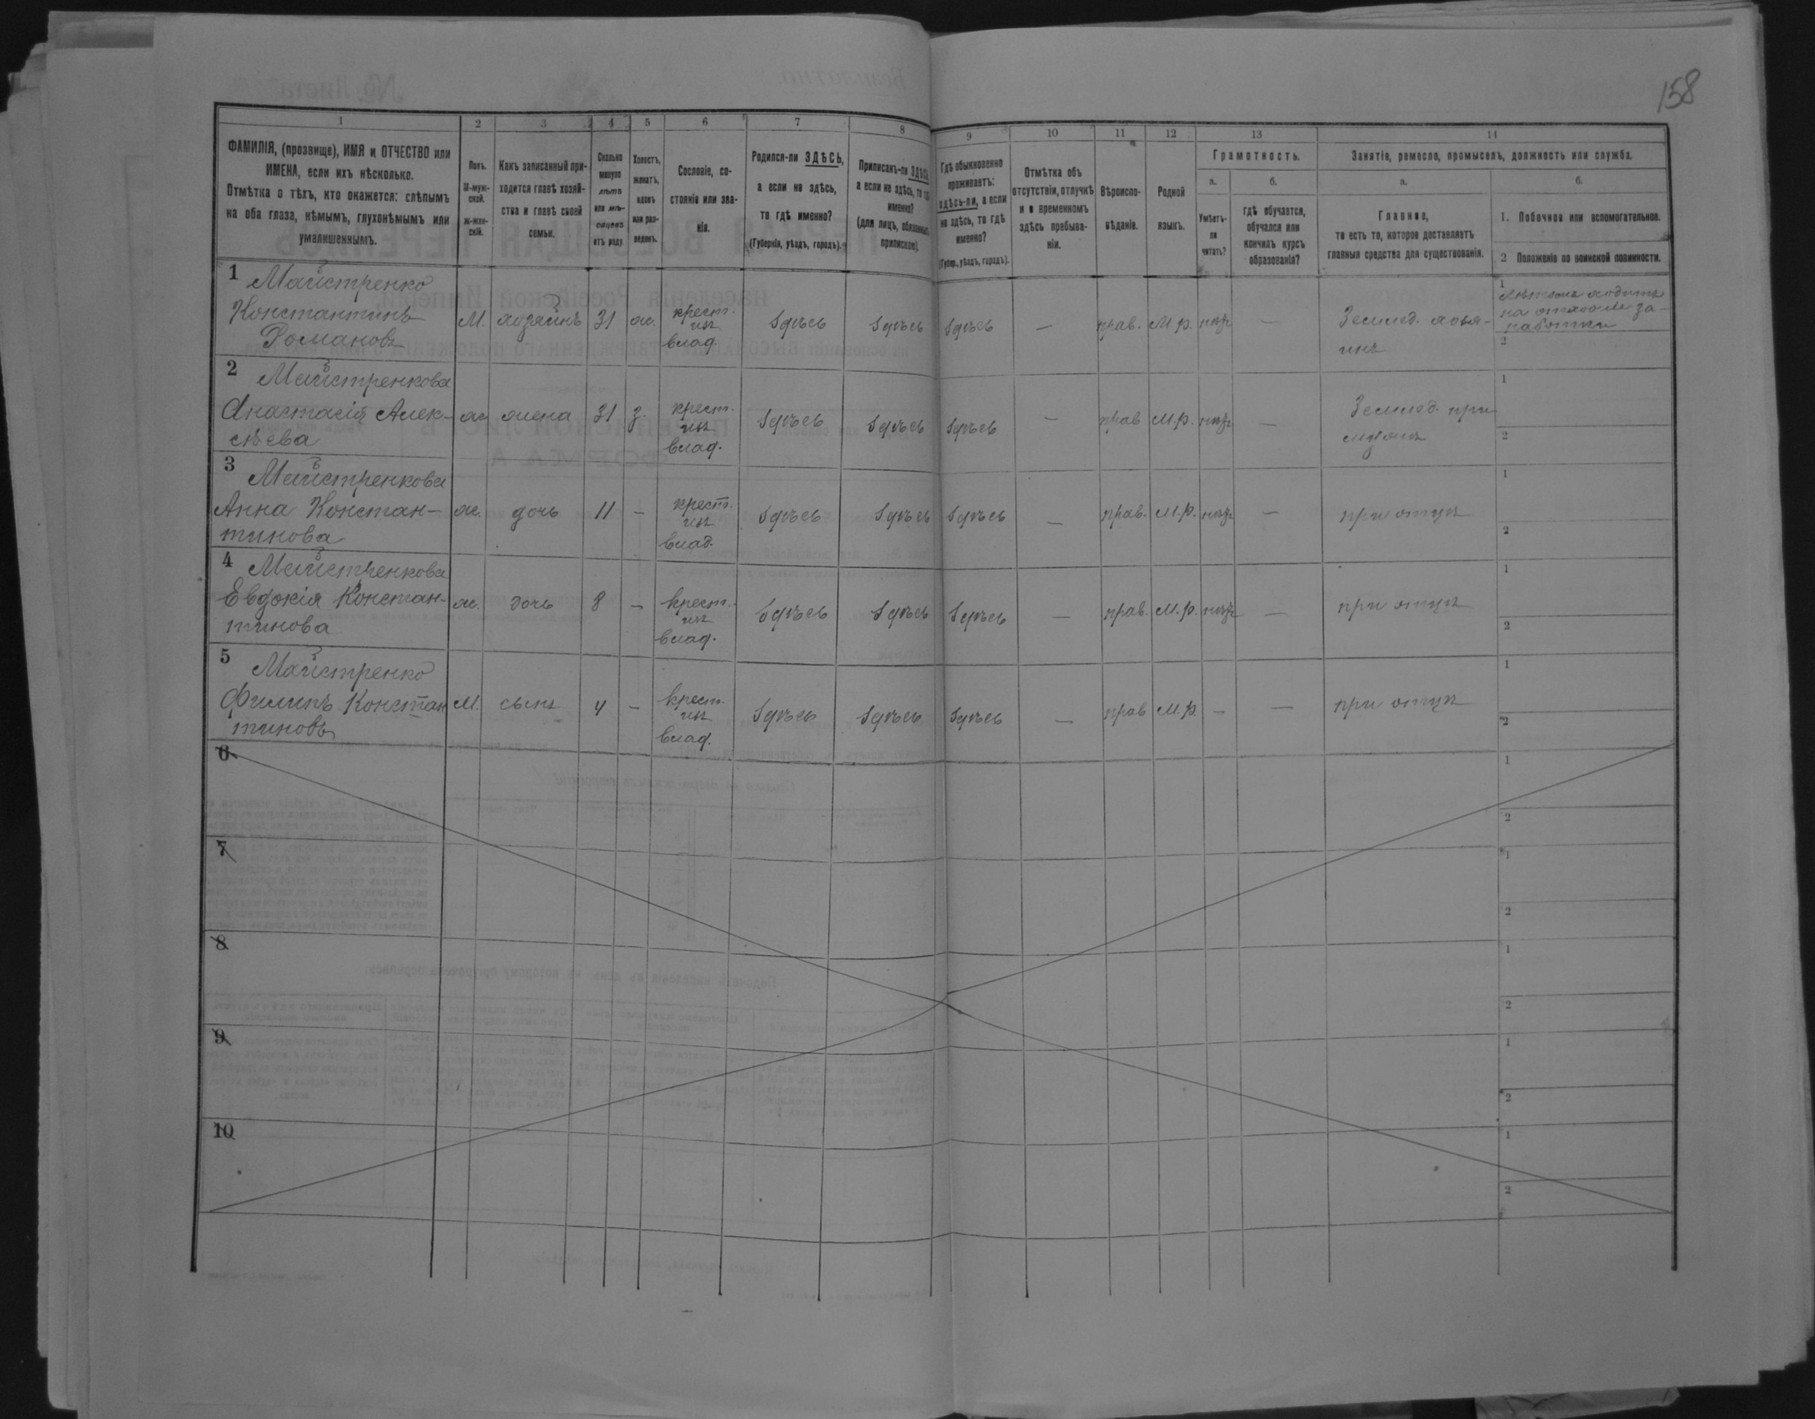 158
1 2 3 4 5 6 7 8 9 10 11 12 13 14
ФАМИЛІЯ, (прозвище), ИМЯ и ОТЧЕСТВО или
ИМЕНА, если ихъ нѣсколько.
Отмѣтка о тѣхъ, кто окажется: слѣпымъ
на оба глаза, нѣмымъ, глухонѣмымъ или
умалишеннымъ.
Полъ.
М-муж-
ской.
Ж-жен-
скій.
Какъ записанный при-
ходится главѣ хозяй-
ства и главѣ своей
семьи.
Сколько
минуло
лѣтъ
или мѣ-
сяцевъ
отъ роду.
Холостъ,
женатъ,
вдовъ
или раз-
веденъ.
Сословіе, со-
стояніе или зва-
ніе.
Родился-ли ЗДѢСЬ,
а если не здѣсь,
то гдѣ именно?
(Губернія, уѣздъ, городъ).
Приписанъ-ли ЗДѢСЬ,
а если не здѣсь, то гдѣ
именно?
(для лицъ, обязанныхъ
припискою).
Гдѣ обыкновенно
проживаетъ:
здѣсь-ли, а если
не здѣсь, то гдѣ
именно?
(Губер., уѣздъ, городъ).
Отмѣтка объ
отсутствіи, отлучкѣ
и о временномъ
здѣсь пребыва-
ніи.
Вѣроиспо-
вѣданіе.
Родной
языкъ.
Грамотность.
а.
Умѣетъ-
ли
читать?
б.
гдѣ обучается,
обучался или
кончилъ курсъ
образованія?
Занятіе, ремесло, промыселъ, должность или служба.
а.
Главное,
то есть то, которое доставляетъ
главныя средства для существованія.
б.
1. Побочное или вспомогательное.
2 Положеніе по воинской повинности.
1 Майстренко
Константинъ
Романовъ
М. хозяинъ 31 ж. крест. изъ влад. здѣсь здѣсь здѣсь — прав. М.р. нѣтъ — Землед. хозя-
инъ
1 Лѣтомъ ходитъ
на отхожіе за-
работки
2
2 Майстренкова
Анастасія Алек-
сѣева
ж. жена 31 з. крест. изъ влад. здѣсь здѣсь здѣсь — прав М.р. нѣтъ — Землед. при
мужѣ
1
2
3 Майстренкова
Анна Констан-
тинова
ж. дочь 11 — крест. изъ влад. здѣсь здѣсь здѣсь — прав. М.р. нѣтъ — при отцѣ
1
2
4 Майстренкова
Евдокія Констан-
тинова
ж. дочь 8 — крест. изъ влад. здѣсь здѣсь здѣсь — прав М.р. нѣтъ — при отцѣ
1
2
5 Майстренко
Филипъ Констан
тиновъ
М. сынъ 4 — крест. изъ влад. здѣсь здѣсь здѣсь — прав М.р. — — при отцѣ
1
2
6
1
2
7
1
2
8
1
2
9
1
2
10
1
2